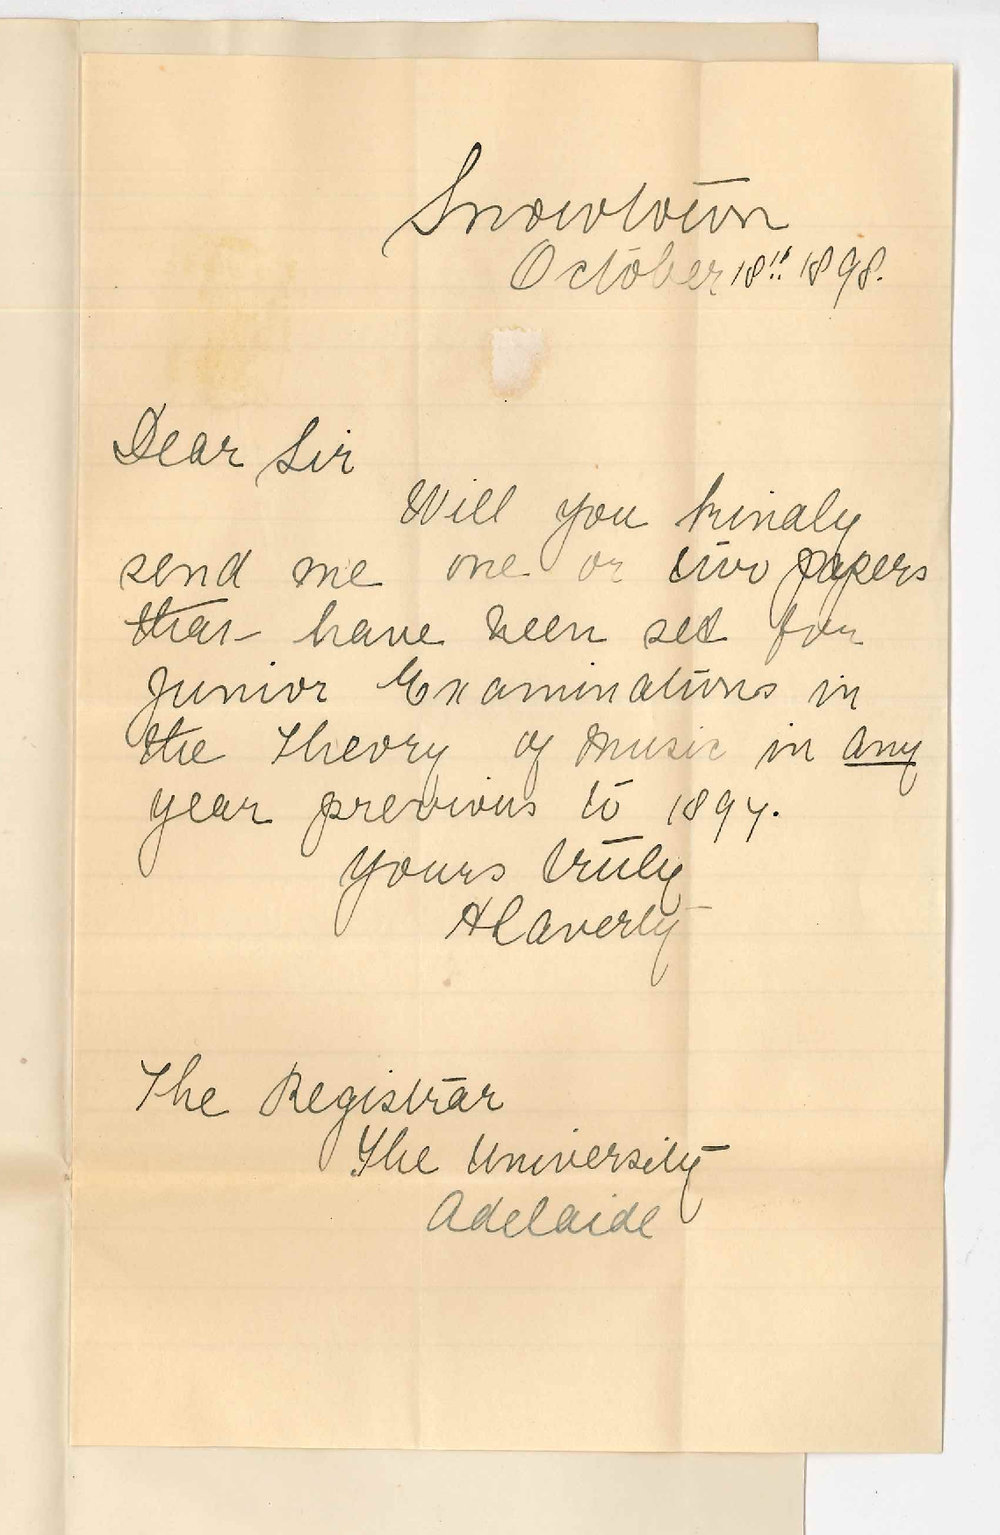 Snowtown
October 18th 1898.
Dear Sir
Will you kindly
send me one or two papers
that have been set for
Junior Examinations in
the Theory of Music in any
year previous to 1897.
Yours truly
The Registrar
The University
Adelaide